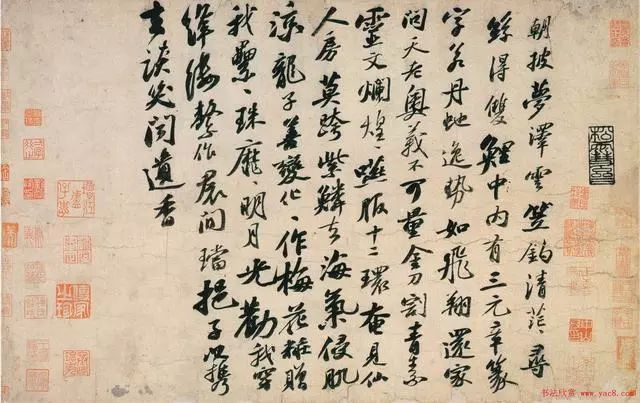 朝披夢澤雲笠釣清茫〻尋
絲得雙鯉中內有三元章篆
字若丹虵逸勢如飛翔還家
問天老奧義不可量金刀割青素
靈文爛煌〻嚥服十二環奄見仙
人房莫跨紫鱗去海氣侵肌
涼龍子善變化〻作梅花糚贈
我纍〻珠靡〻明月光勸我穿
絳縷繫作裙間璫挹子以攜
去談笑聞遺香
书法欣赏 www.yac8.com